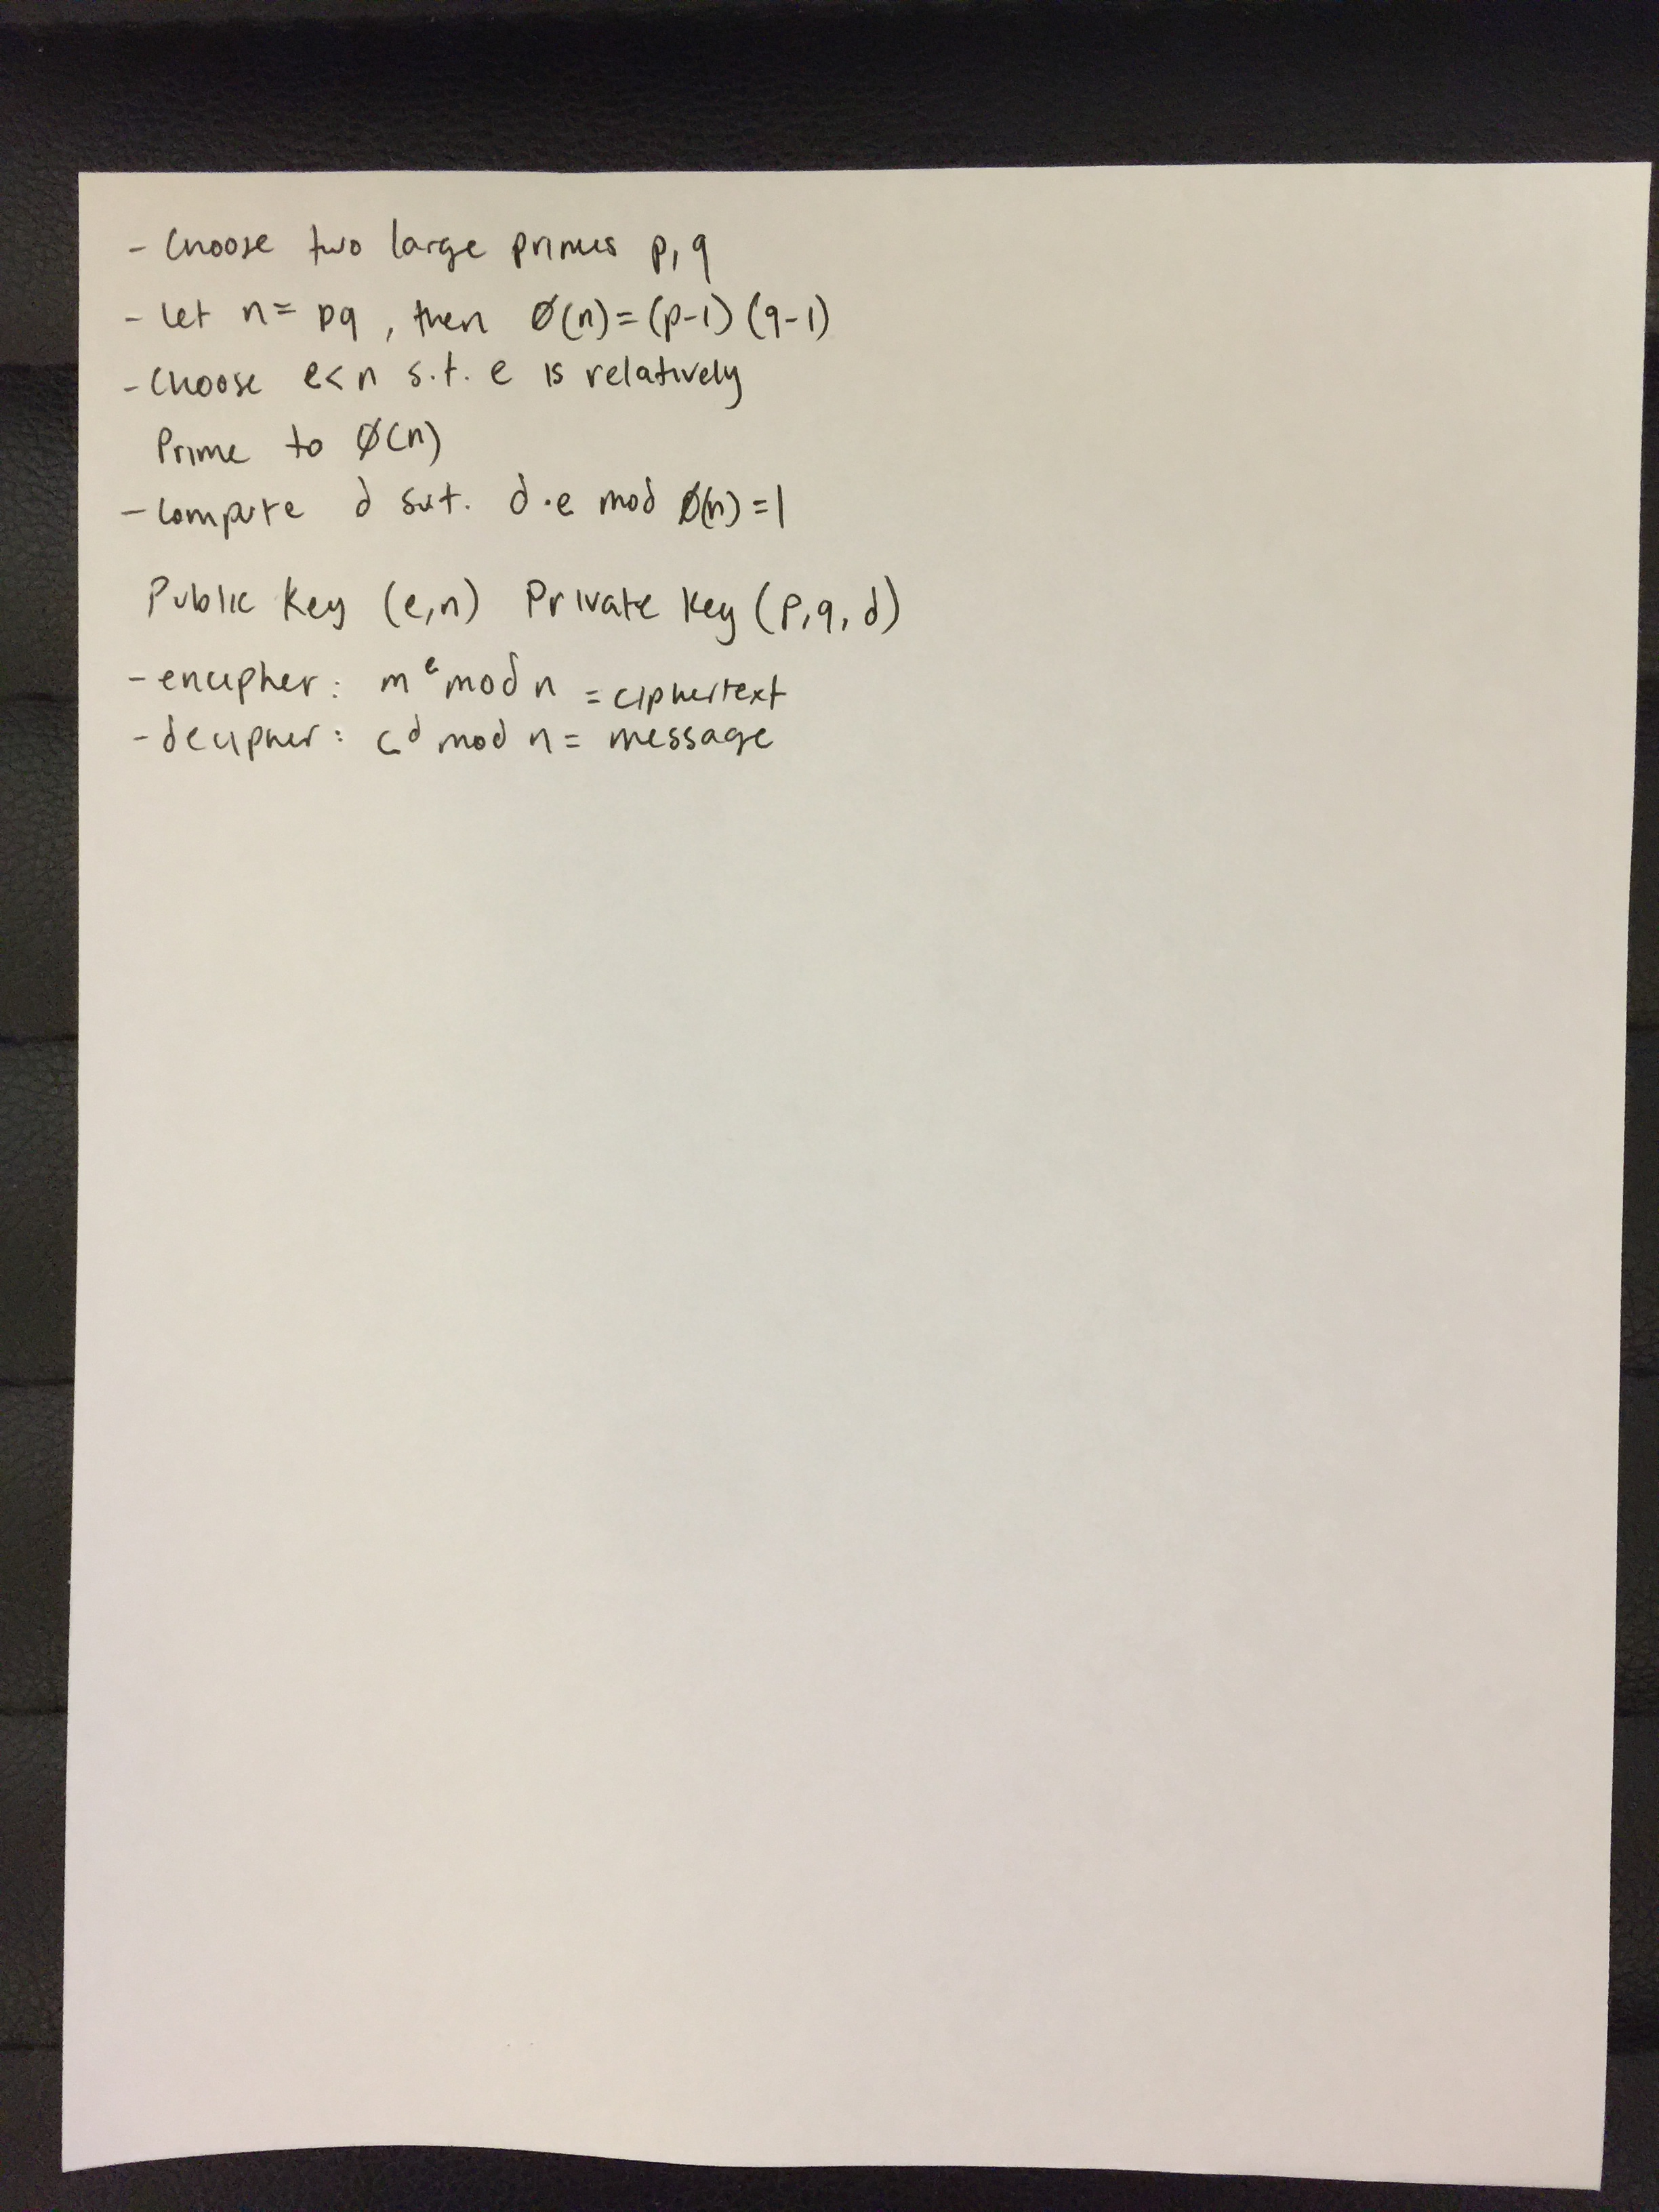 - Choose two large primes p, q
- Let n = pq, then Ø(n) = (p-1) (q-1)
- Choose e < n s.t. e is relatively
Prime to Ø(n)
- Compute d s.t. d·e mod Ø(n) = 1
Public Key (e,n) Private Key (p,q,d)
- encipher: m^e mod n = ciphertext
- decipher: c^d mod n = message